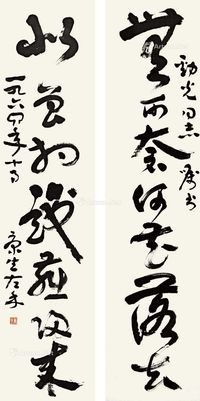 勁光同志 嘱书
無可奈何花落去
似曾相識燕歸来
一九六四年十月 康生左手